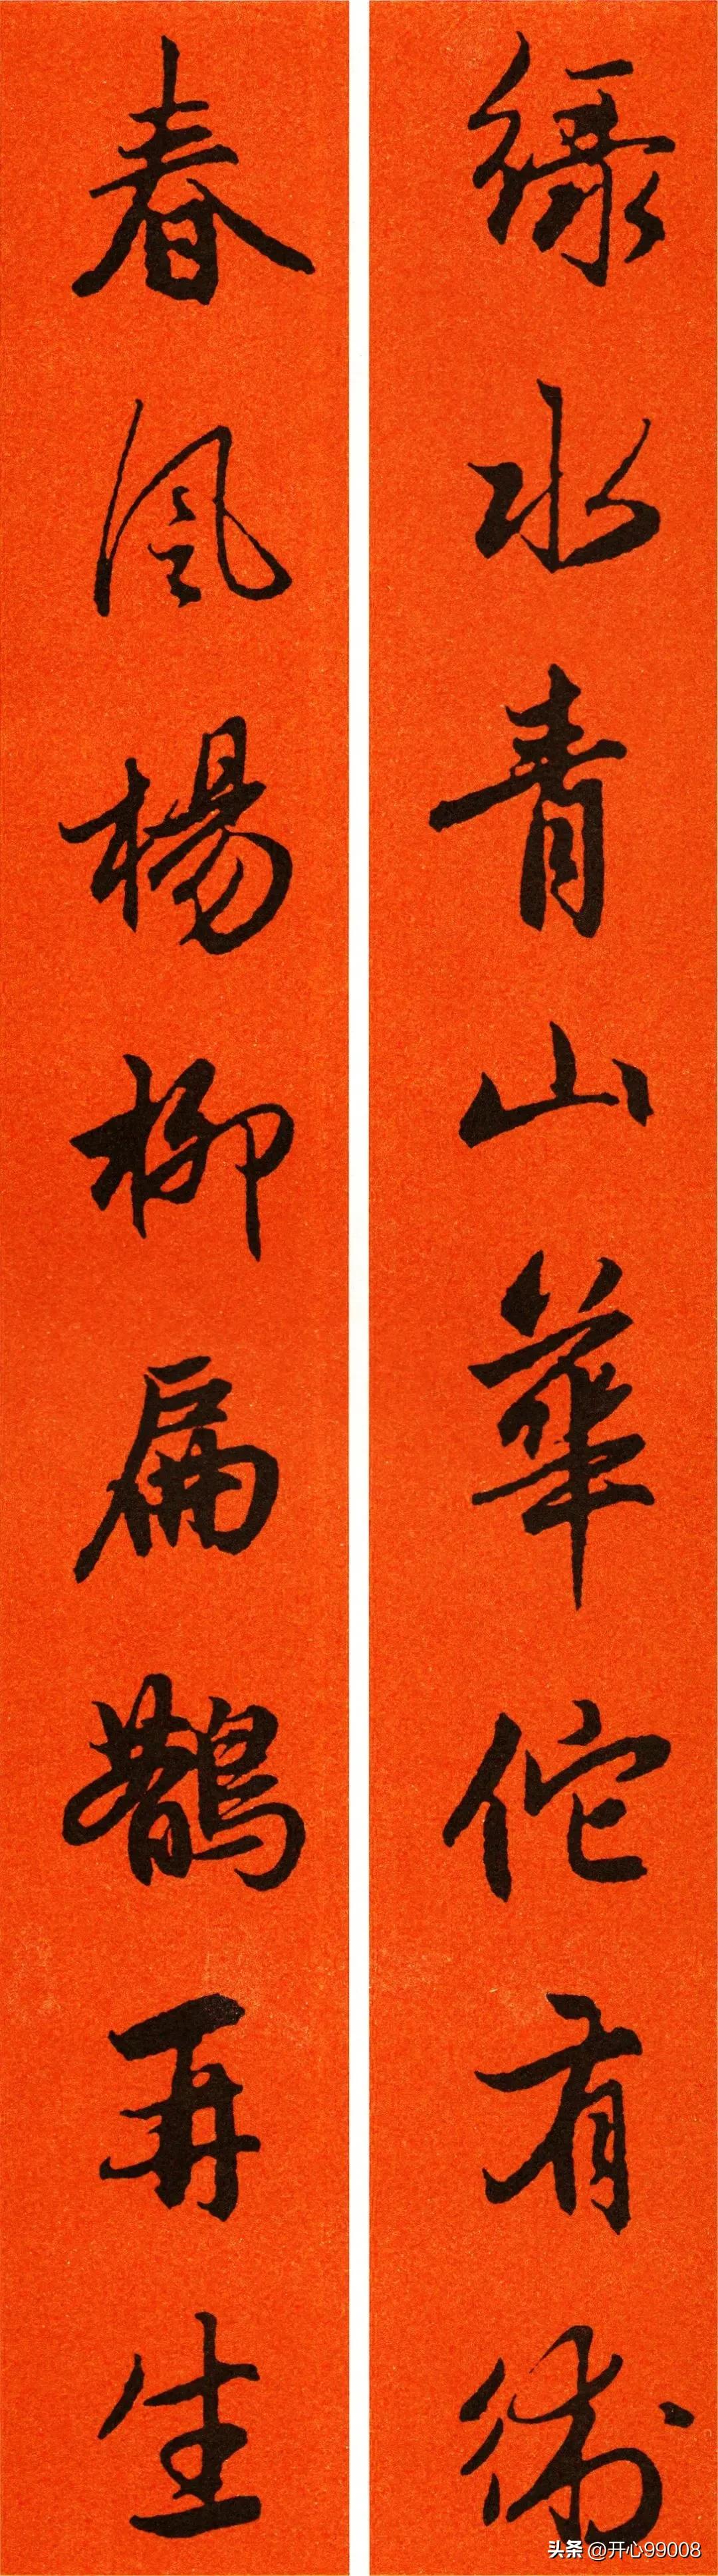 緑水青山華佗有術
春風楊柳扁鵲再生
头条 @开心99008